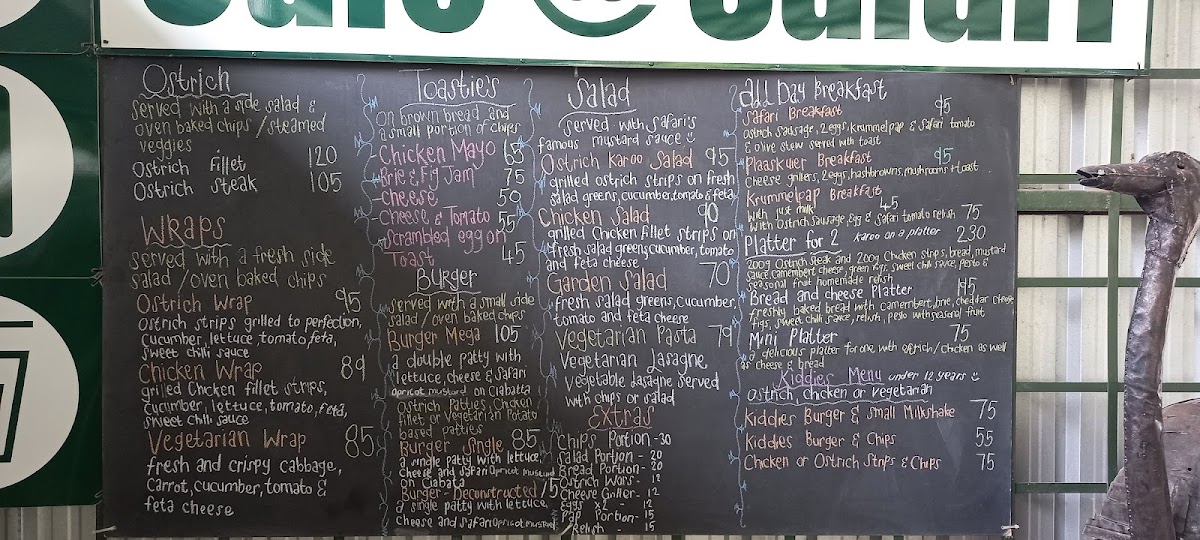 Cafe @ Safari
Ostrich
Served with a side salad &
oven baked chips / steamed
veggies
Ostrich fillet 120
Ostrich steak 105
WRAPS
served with a fresh side
salad / oven baked chips
Ostrich Wrap 95
Ostrich strips grilled to perfection,
Cucumber, lettuce, tomato, feta,
sweet chilli sauce
Chicken Wrap 89
grilled Chicken fillet strips,
cucumber, lettuce, tomato, feta,
sweet chilli sauce
Vegetarian Wrap 85
fresh and crispy cabbage,
Carrot, cucumber, tomato &
feta cheese
Toastie's
on brown bread and
a small portion of chips
Chicken Mayo 65
Brie & Fig Jam 75
cheese 50
Cheese & Tomato 55
Scrambled egg on
Toast 45
Burger
served with a small side
salad / oven baked chips
Burger Mega 105
a double patty with
lettuce, cheese & Safari
apricot mustard on Ciabatta
Ostrich Patties Chicken
fillet or vegetarian Potato
based patties
Burger - Single 85
a single patty with lettuce,
cheese and safari apricot mustard
on Ciabata
Burger - Deconstructed 75
a single patty with lettuce,
cheese and safari apricot mustard
Salad
served with Safari's
famous mustard sauce
Ostrich Karoo Salad 95
grilled ostrich strips on fresh
salad greens, cucumber, tomato & feta
Chicken Salad 90
grilled Chicken fillet strips on
fresh salad greens, cucumber, tomato
and feta cheese
Garden Salad 70
fresh salad greens, cucumber,
tomato and feta cheese
Vegetarian Pasta 79
Vegetarian Lasagne
Vegetable lasagne served
with chips or salad
Extras
Chips Portion - 30
Salad Portion - 20
Bread Portion - 20
Ostrich Wors - 12
Cheese Griller - 12
Eggs x2 - 12
Pap Portion - 15
Relish - 15
all Day Breakfast
Safari Breakfast 95
Ostrich Sausage, 2 eggs, Krummelpap & Safari tomato
& olive stew served with toast
Plaaskuier Breakfast 95
Cheese grillers, 2 eggs, hashbrowns, mushrooms + toast
Krummelpap Breakfast
With just milk 45
With Ostrich Sausage, Egg & Safari tomato relish 75
Platter for 2 Karoo on a platter 230
200g Ostrich Steak and 200g Chicken Strips, bread, mustard
sauce, camembert cheese, green figs, sweet chilli sauce, pesto &
seasonal fruit homemade relish
Bread and cheese Platter
freshly baked bread with camembert, brie, cheddar cheese
figs, sweet chilli sauce, relish, pesto with seasonal fruit
Mini Platter 75
a delicious platter for one with ostrich / chicken as well
as cheese & bread
Kiddies Menu under 12 years
Ostrich, chicken or vegetarian
Kiddies Burger & small Milkshake 75
Kiddies Burger & Chips 55
Chicken or Ostrich Strips & Chips 75